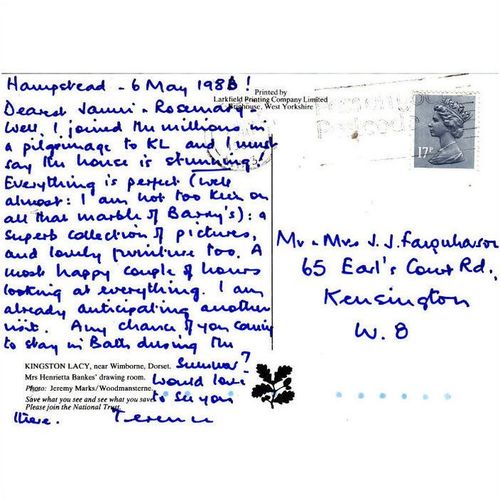 Hampstead - 6 May 1986!
Dearest Jamri - Rosemary -
Well, I joined the millions in
a pilgrimage to KL, and I must
say the house is stunning!
Everything is perfect (well
almost: I am not too keen on
all that marble of Barry's): a
superb collection of pictures,
and lovely furniture too. A
most happy couple of hours
looking at everything. I am
already anticipating another
visit. Any chance of you coming
to stay in Bath during the
summer?
Would love
to see you
there. Terence
KINGSTON LACY, near Wimborne, Dorset.
Mrs Henrietta Bankes' drawing room.
Photo: Jeremy Marks/Woodmansterne.
Save what you see and see what you save
Please join the National Trust.
Printed by
Larkfield Printing Company Limited
Brighouse, West Yorkshire
Postcode
17P
Mr & Mrs J. J. Farquharson
65 Earl's Court Rd.,
Kensington
W. 8